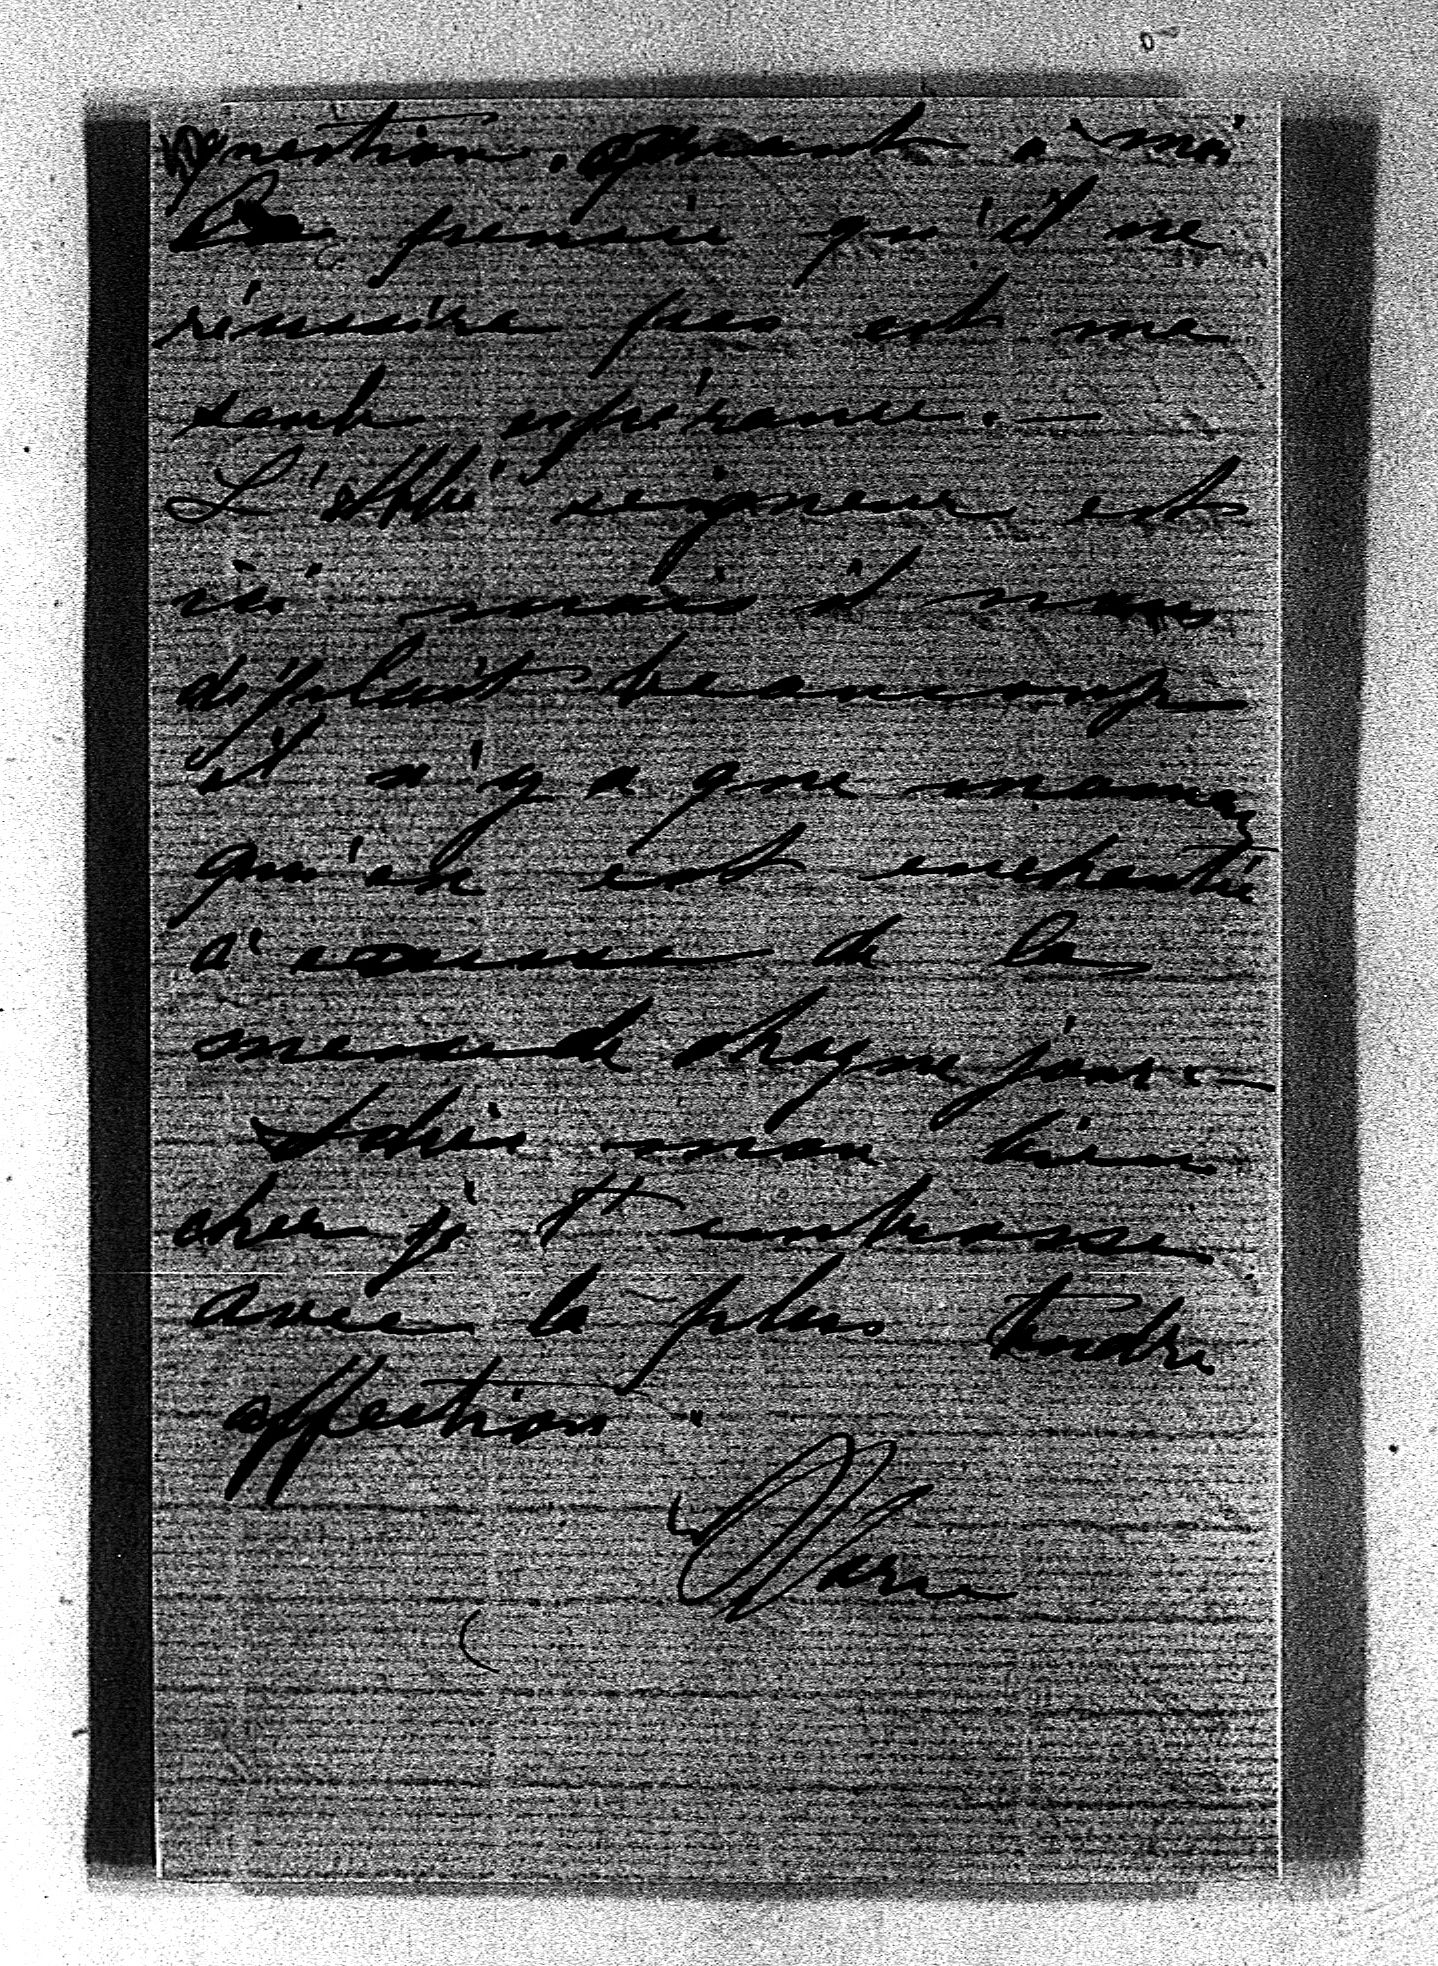 question. quant à moi
La pensée qu'il ne
réussira pas est ma
seule espérance. —
L'abbé seigneur est
ici mais il nous
déplait beaucoup
il n'y a que maman
qu'en est enchantée
à cause de la
messe de chaque jour. —
Adieu mon bien
cher je t'embrasse
avec la plus tendre
affection.
Marie